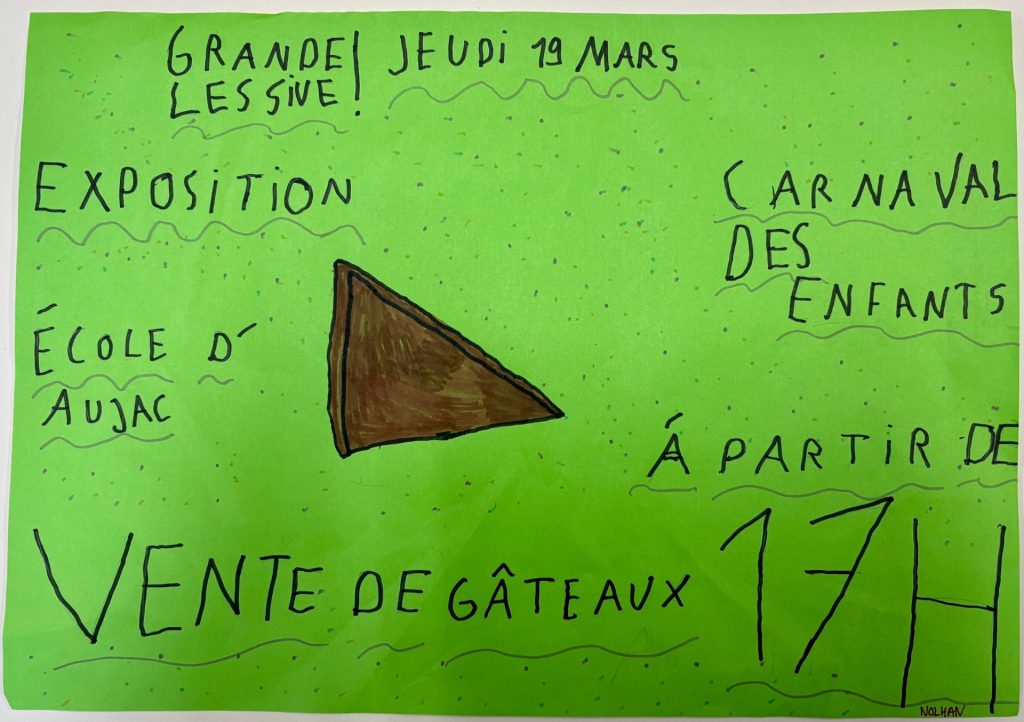 GRANDE
LESSIVE!
JEUDI 19 MARS
EXPOSITION
CARNAVAL
DES
ENFANTS
ÉCOLE D'
AUJAC
Á PARTIR DE
17H
VENTE DE GÂTEAUX
NOLHAN